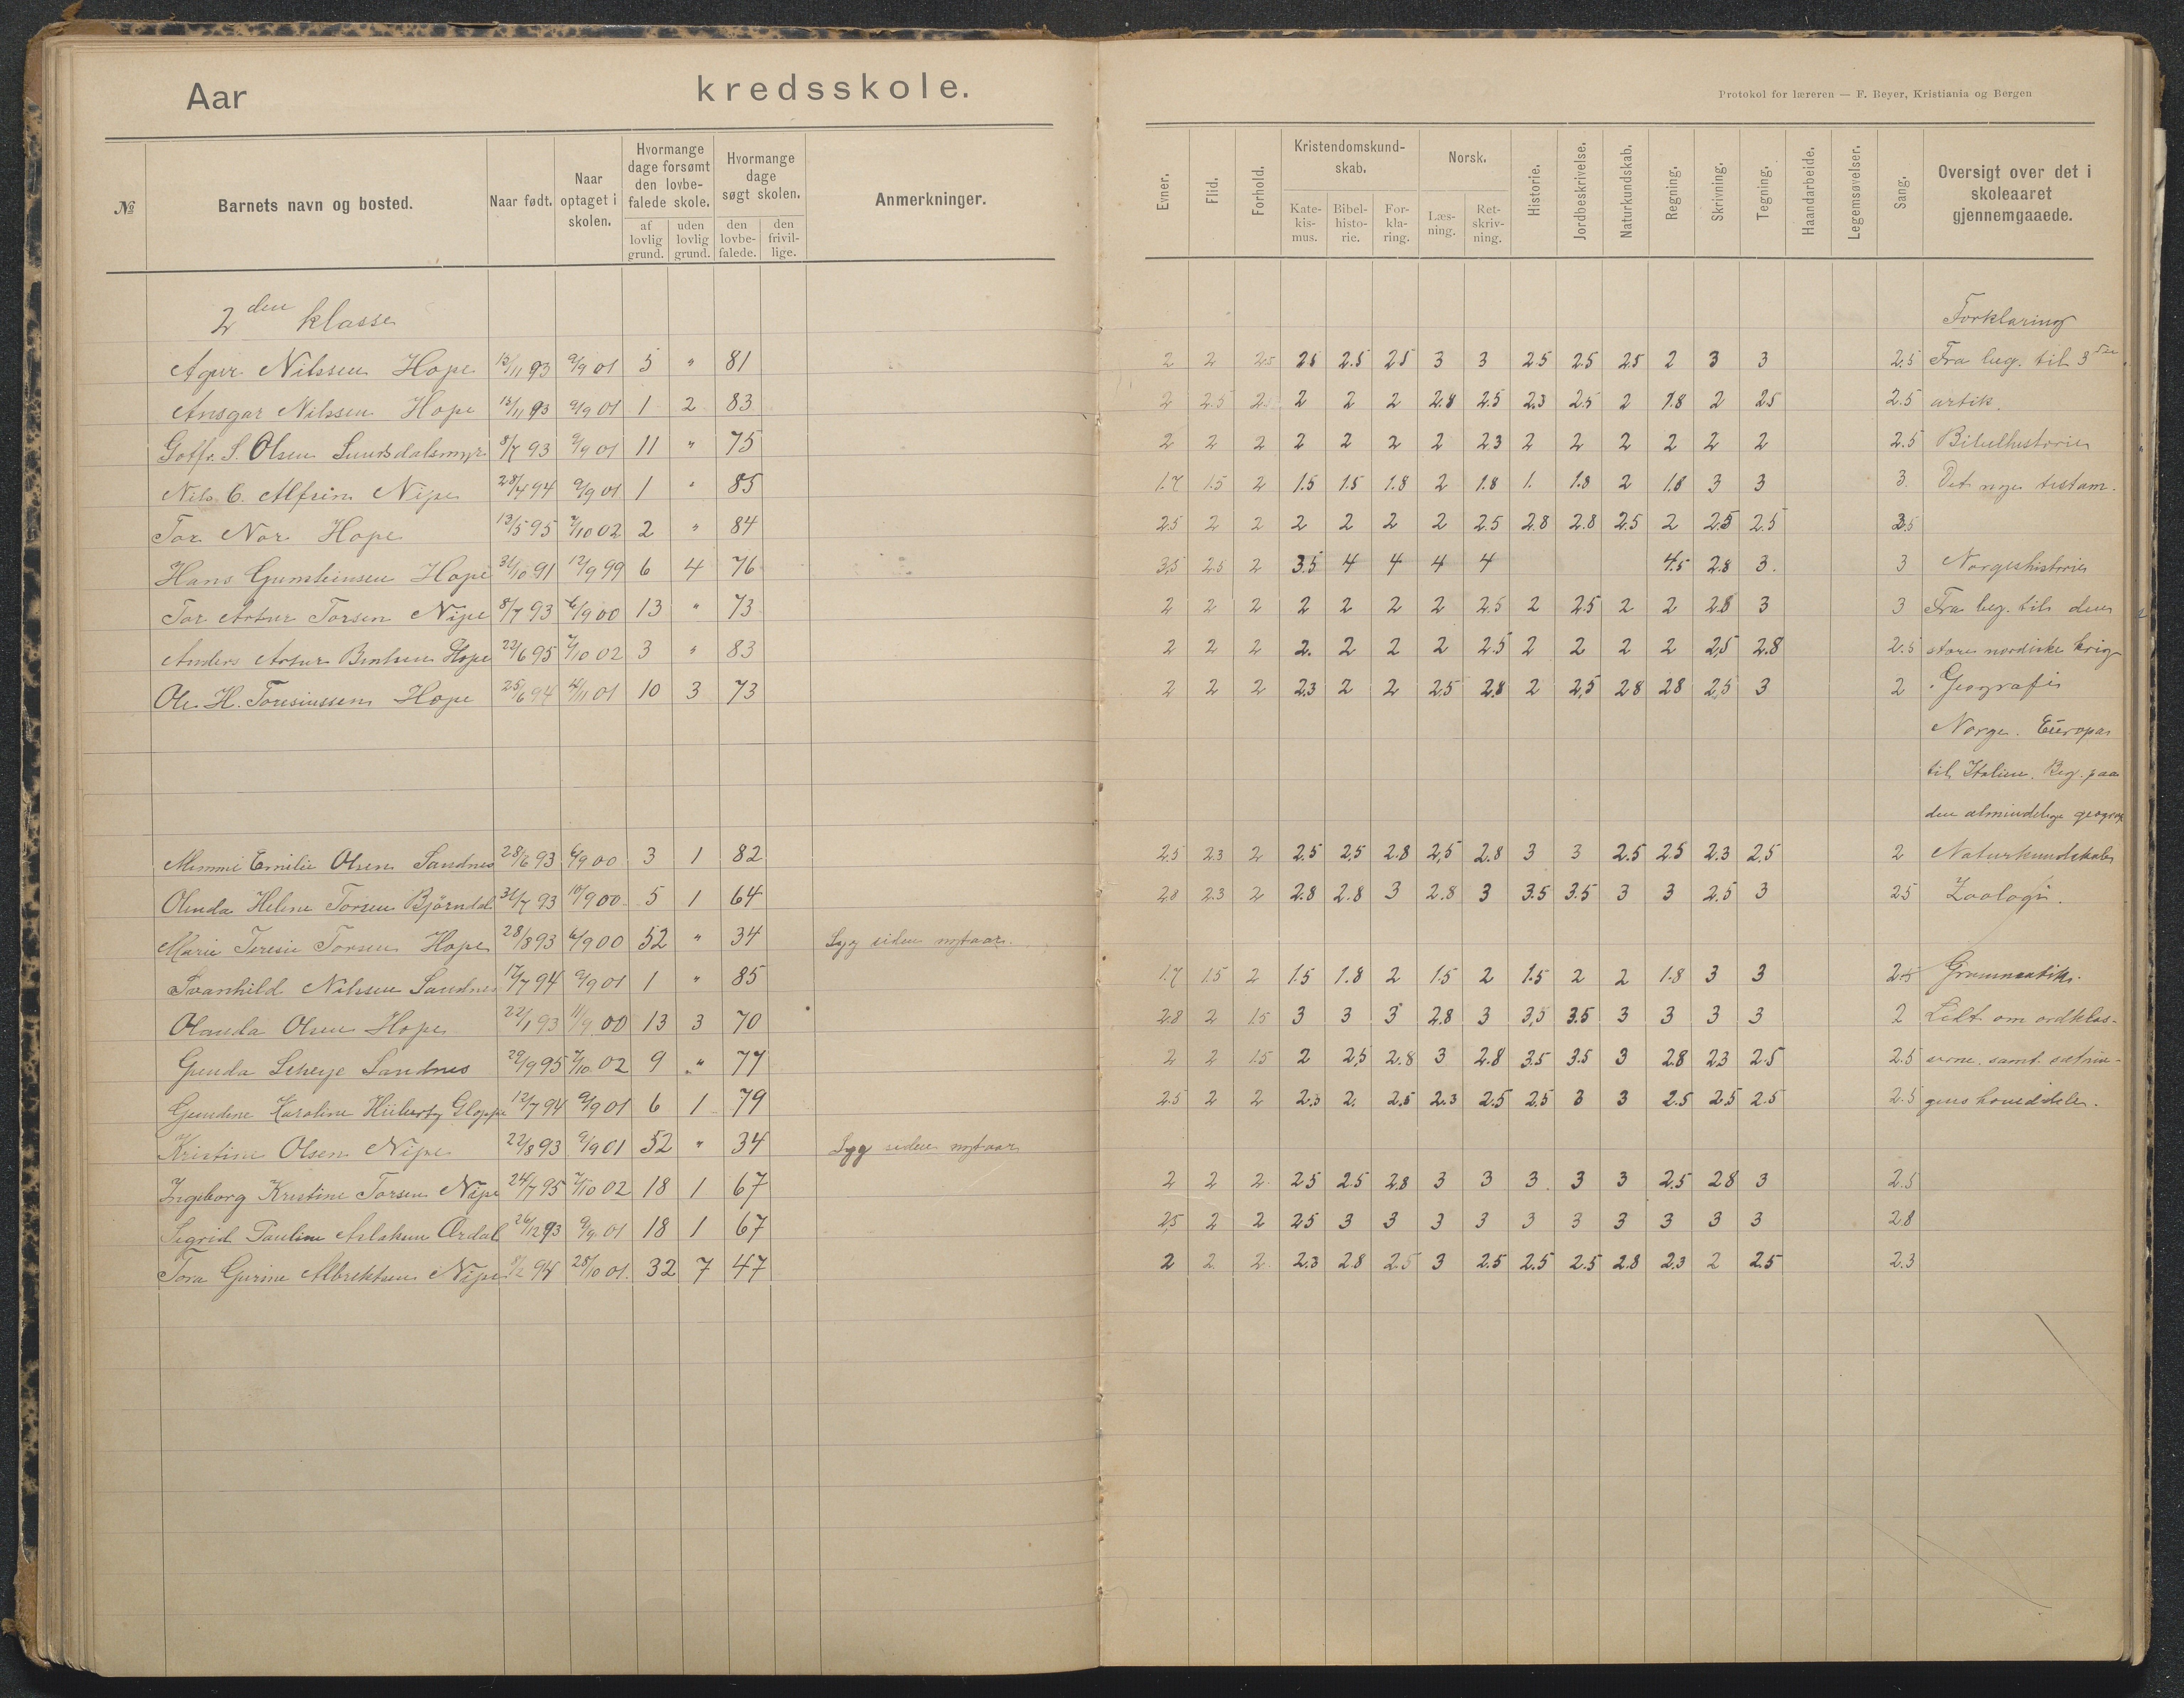 Aar kredsskole.
Protokol for læreren — F. Beyer, Kristiania og Bergen
№ Barnets navn og bosted. Naar født. Naar optaget i skolen. Hvormange dage forsømt den lovbefalede skole. af lovlig grund. uden lovlig grund. Hvormange dage søgt skolen. den lovbefalede. den frivillige. Anmerkninger.
Evner. Flid. Forhold. Kristendomskundskab. Katekismus. Bibelhistorie. Forklaring. Norsk. Læsning. Retskrivning. Historie. Jordbeskrivelse. Naturkundskab. Regning. Skrivning. Tegning. Haandarbeide. Legemsøvelser. Sang. Oversigt over det i skoleaaret gjennemgaaede.
2den klasse Forklaring
Nilssen Hope 13/11 93 9/9 01 5 " 81 2 2 2.5 2.5 2.5 2.5 3 3 2.5 2.5 2.5 2 3 3 2.5 Fra beg. til 3
Ansgar Nilssen Hope 13/11 93 9/9 01 1 2 83 2 2.5 2 2 2 2 2.8 2.5 2.3 2.5 2 1.8 2 2.5 2.5 artik.
S. Olsen 8/7 93 9/9 01 11 " 75 2 2 2 2 2 2 2 2.3 2 2 2 2 2 2 2.5 Bibelhistorie
Nils C. Alfsin Nipe 28/4 94 9/9 01 1 " 85 1.7 1.5 2 1.5 1.5 1.8 2 1.8 1. 1.8 2 1.8 3 3 3. Det nye testam.
Tor Nor Hope 13/5 95 7/10 02 2 " 84 2.5 2 2 2 2 2 2 2.5 2.8 2.8 2.5 2 2.5 2.5 3.5
Hans Gunsteinsen Hope 31/10 91 12/9 99 6 4 76 3.5 2.5 2 3.5 4 4 4 4 4.5 2.8 3. 3 Norgeshistorie
Tor Artur Torsen Nipe 8/7 93 6/9 00 13 " 73 2 2 2 2 2 2 2 2.5 2 2.5 2 2 2.8 3 3 Fra beg. til den
Anders Artur Hope 22/6 95 7/10 02 3 " 83 2 2 2 2. 2 2 2 2.5 2 2 2 2 2.5 2.8 2.5 store nordiske krig
Ole H. Toresiussen Hope 25/6 94 4/11 01 10 3 73 2 2 2 2.3 2 2 2.5 2.8 2 2.5 2.8 2.8 2.5 3 2 Geografi
Norge. Europa
til Italien. Beg. paa
den almindelige geogra
Mimmi Emilie Olsen Sandnes 28/6 93 6/9 00 3 1 82 2.5 2.3 2 2.5 2.5 2.8 2.5 2.8 3 3 2.5 2.5 2.3 2.5 2 Naturkundskab
Olinda Helene Torsen Bjørndal 31/7 93 10/9 00 5 1 64 2.8 2.3 2 2.8 2.8 3 2.8 3 3.5 3.5 3 3 2.5 3 2.5 Zoologi.
Marie Teresie Torsen Hope 28/8 93 6/9 00 52 " 34 Syg siden nytaar.
Svanhild Nilssen Sandnes 17/7 94 9/9 01 1 " 85 1.7 1.5 2 1.5 1.8 2 1.5 2 1.5 2 2 1.8 3 3 2.5 Grammatik.
Olanda Olsen Hope 22/1 93 11/9 00 13 3 70 2.8 2 1.5 3 3 3 2.8 3 3.5 3.5 3 3 3 3 2 Lidt om ordklas-
Gunda Sandnes 29/9 95 7/10 02 9 " 77 2 2 1.5 2 2.5 2.8 3 2.8 3.5 3.5 3 2.8 2.3 2.5 2.5 serne samt sætnin-
Gundine Karoline 12/7 94 9/9 01 6 1 79 2.5 2 2 2.3 2. 2.5 2.3 2.5 2.5 3 3 2.5 2.5 2.5 2.5 gens hoveddele.
Kristine Olsen Nipe 22/8 93 9/9 01 52 " 34 Syg siden nytaar
Ingeborg Kristine Torsen Nipe 24/7 95 7/10 02 18 1 67 2 2 2 2.5 2.5 2.8 3 3 3 3 3 2.5 2.8 3 2.5
Sigrid Pauline Aslaksen Ørdal 26/12 93 9/9 01 18 1 67 2.5 2 2 2.5 3 3 3 3 3 3 3 3 3 3 2.8
Tora Gurine Albrektsen Nipe 8/2 94 28/10 01. 32 7 47 2 2 2 2.3 2.8 2.5 3 2.5 2.5 2.5 2.8 2.3 2 2.5 2.3